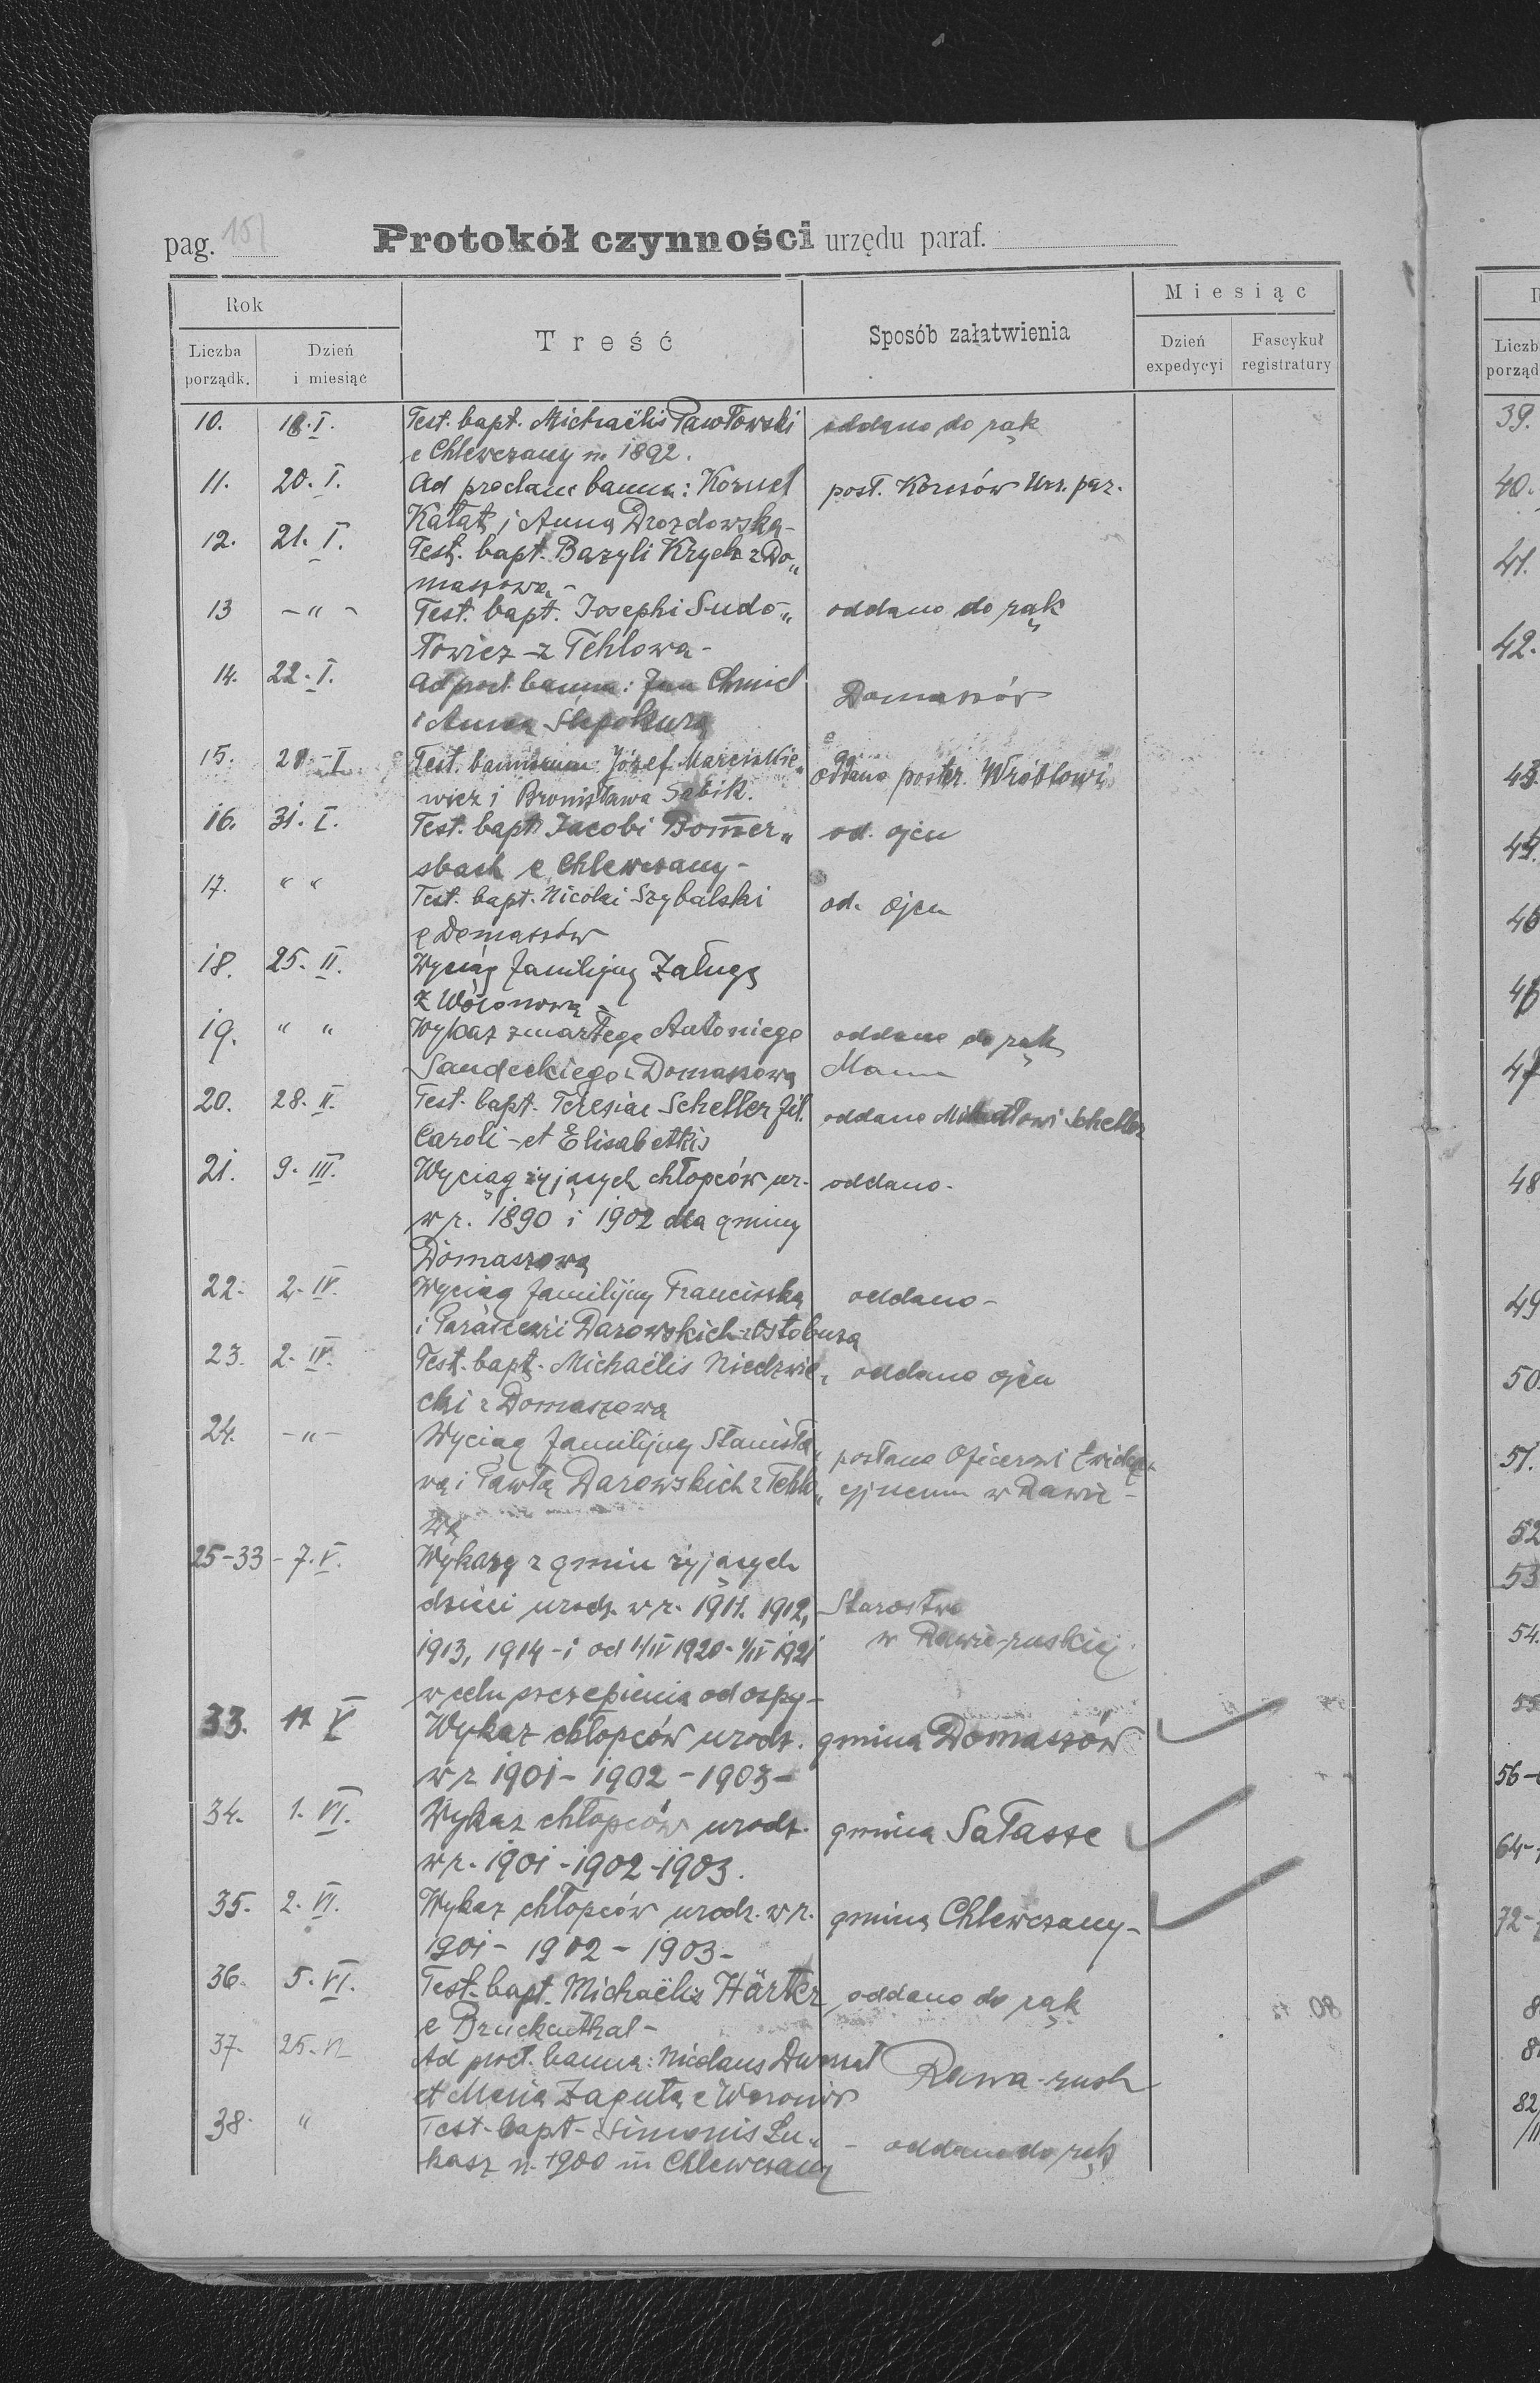 pag. 151
Protokół czynności urzędu paraf.
Rok
Treść
Sposób załatwienia
Miesiąc
Liczba porządk.
Dzień i miesiąc
Dzień expedycyi
Fascykuł registratury
10. 18. I. Test. bapt. Michaëlis Pawłowski oddano do rąk
e Chlewczany n. 1892.
11. 20. I. Ad proclam banna: Kornel post. Kornsów Urz. par.
Kałat i Anna Drozdowska -
12. 21. I. Test. bapt. Bazyli Krych z Do„
maszowa -
13 - " - Test. bapt. Josephi Sudo„ oddano do rąk
łowicz - z Tehlowa -
14. 22. I. Ad procl. banna: Jan Chmiel Domaszów
i Anna Ślepokura
15. I Test. bannorum Józef Marcinkie„ oddano poster. Wróblowi
wicz i Bronisława Sabik.
16. 31. I. Test. bapt. Jacobi Bom̅er„ od. ojcu
sbach e Chlewczany -
17. " " Test. bapt. Nicolai Szybalski od. ojcu
e Domaszów
18. 25. II. Wyciąg familijny Załuga
z Woronowa -
19. " " Wykaz zmarłego Antoniego oddano do rąk
Sandeckiego z Domaszowa
20. 28. II. Test. bapt. Teresiae Scheller fil. oddano Scheller
Caroli - et Elisabethis
21. 9. III. Wyciąg żyjących chłopców ur. oddano -
w r. 1890 i 1902 dla gminy
Domaszowa
22. 2. IV. Wyciąg familijny Franciszka oddano -
i Darowskich z Ostobuża
23. 2. IV. Test. bapt. Michaëlis Niedzwie„ oddano ojcu
cki z Domaszowa
24. - " - Wyciąg familijny Stanisła„ posłano Oficerowi Ewiden„
wa i Pawła Darowskich z Tehlo„ cyjnemu w Rawie -
wa
25-33 - 7. V. Wykazy z gmin żyjących
dzieci urodz. w r. 1911. 1912, Starostwo
1913, 1914 - i od 1/IV 1920 - 1/IV 1921 w Rawie-ruskiej.
w celu szczepienia od ospy -
33. 11 V Wykaz chłopców urodz. gmina Domaszów
w r 1901 - 1902 - 1903 -
34. 1. VI. Wykaz chłopców urodz. gmina Sałasze
w r. 1901 - 1902 - 1903.
35. 2. VI. Wykaz chłopców urodz. w r. gmina Chlewczany -
1901 - 1902 - 1903 -
36. 5. VI. Test. bapt. Michaëlis Härter oddano do rąk
e Bruckenthal -
37. 25. VI Ad procl. banna: Nicolaus Rawa-rusk
et Maria Zaputa e Woronów
38. " Test. bapt. Simonis Łu„ - oddano do rąk
kasz n. 1900 in Chlewczany
39.
40.
41.
42.
48
49
50.
51.
52
53
54.
55
56-
64-
72-
82